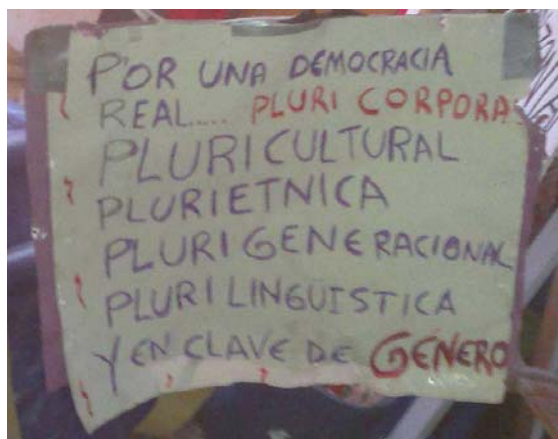 POR UNA DEMOCRACIA
REAL.... PLURI CORPORAS
PLURICULTURAL
PLURIETNICA
PLURIGENERACIONAL
PLURILINGUISTICA
Y EN CLAVE DE GENERO